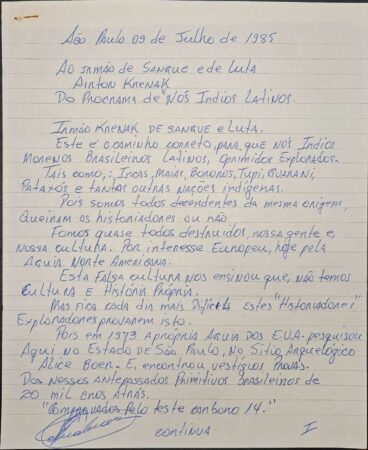 São Paulo 09 de Julho de 1985
Ao irmão de Sangue e de Luta
Ainton Krenak
Do Programa de Nós Indios Latinos.
Irmão Krenak de sangue e Luta.
Este é o caminho correto, para, que nós Indios
Morenos Brasileiros Latinos, Oprimidos Explorados.
Tais como,: Incas, Maias, Bororos, Tupi, Guarani,
Pataxós e tantas outras nações indígenas.
Pois somos todos decendentes da mesma origem,
Queiram os historiadores ou não.
Fomos quase todos destruidos, nossa gente e
nossa cultura. Por interesse Europeu, hoje pela
Aguia Norte Americana.
Esta Falsa cultura nos ensinou que, não temos
Cultura e História Própria.
Mas fica cada dia mais Dificil Estes "Historiadores"
Exploradores provarem isto.
Pois em 1973 a própria Aguia dos E.U.A. pesquisou
Aqui no Estado de São Paulo, No Sitio Arqueológico
Alice Boer. E, encontrou vestigios Provas.
Dos nessos antepassados Primitivos Brasileiros de
20 mil anos atrás.
"Comprovados Pelo teste carbono 14."
continua I